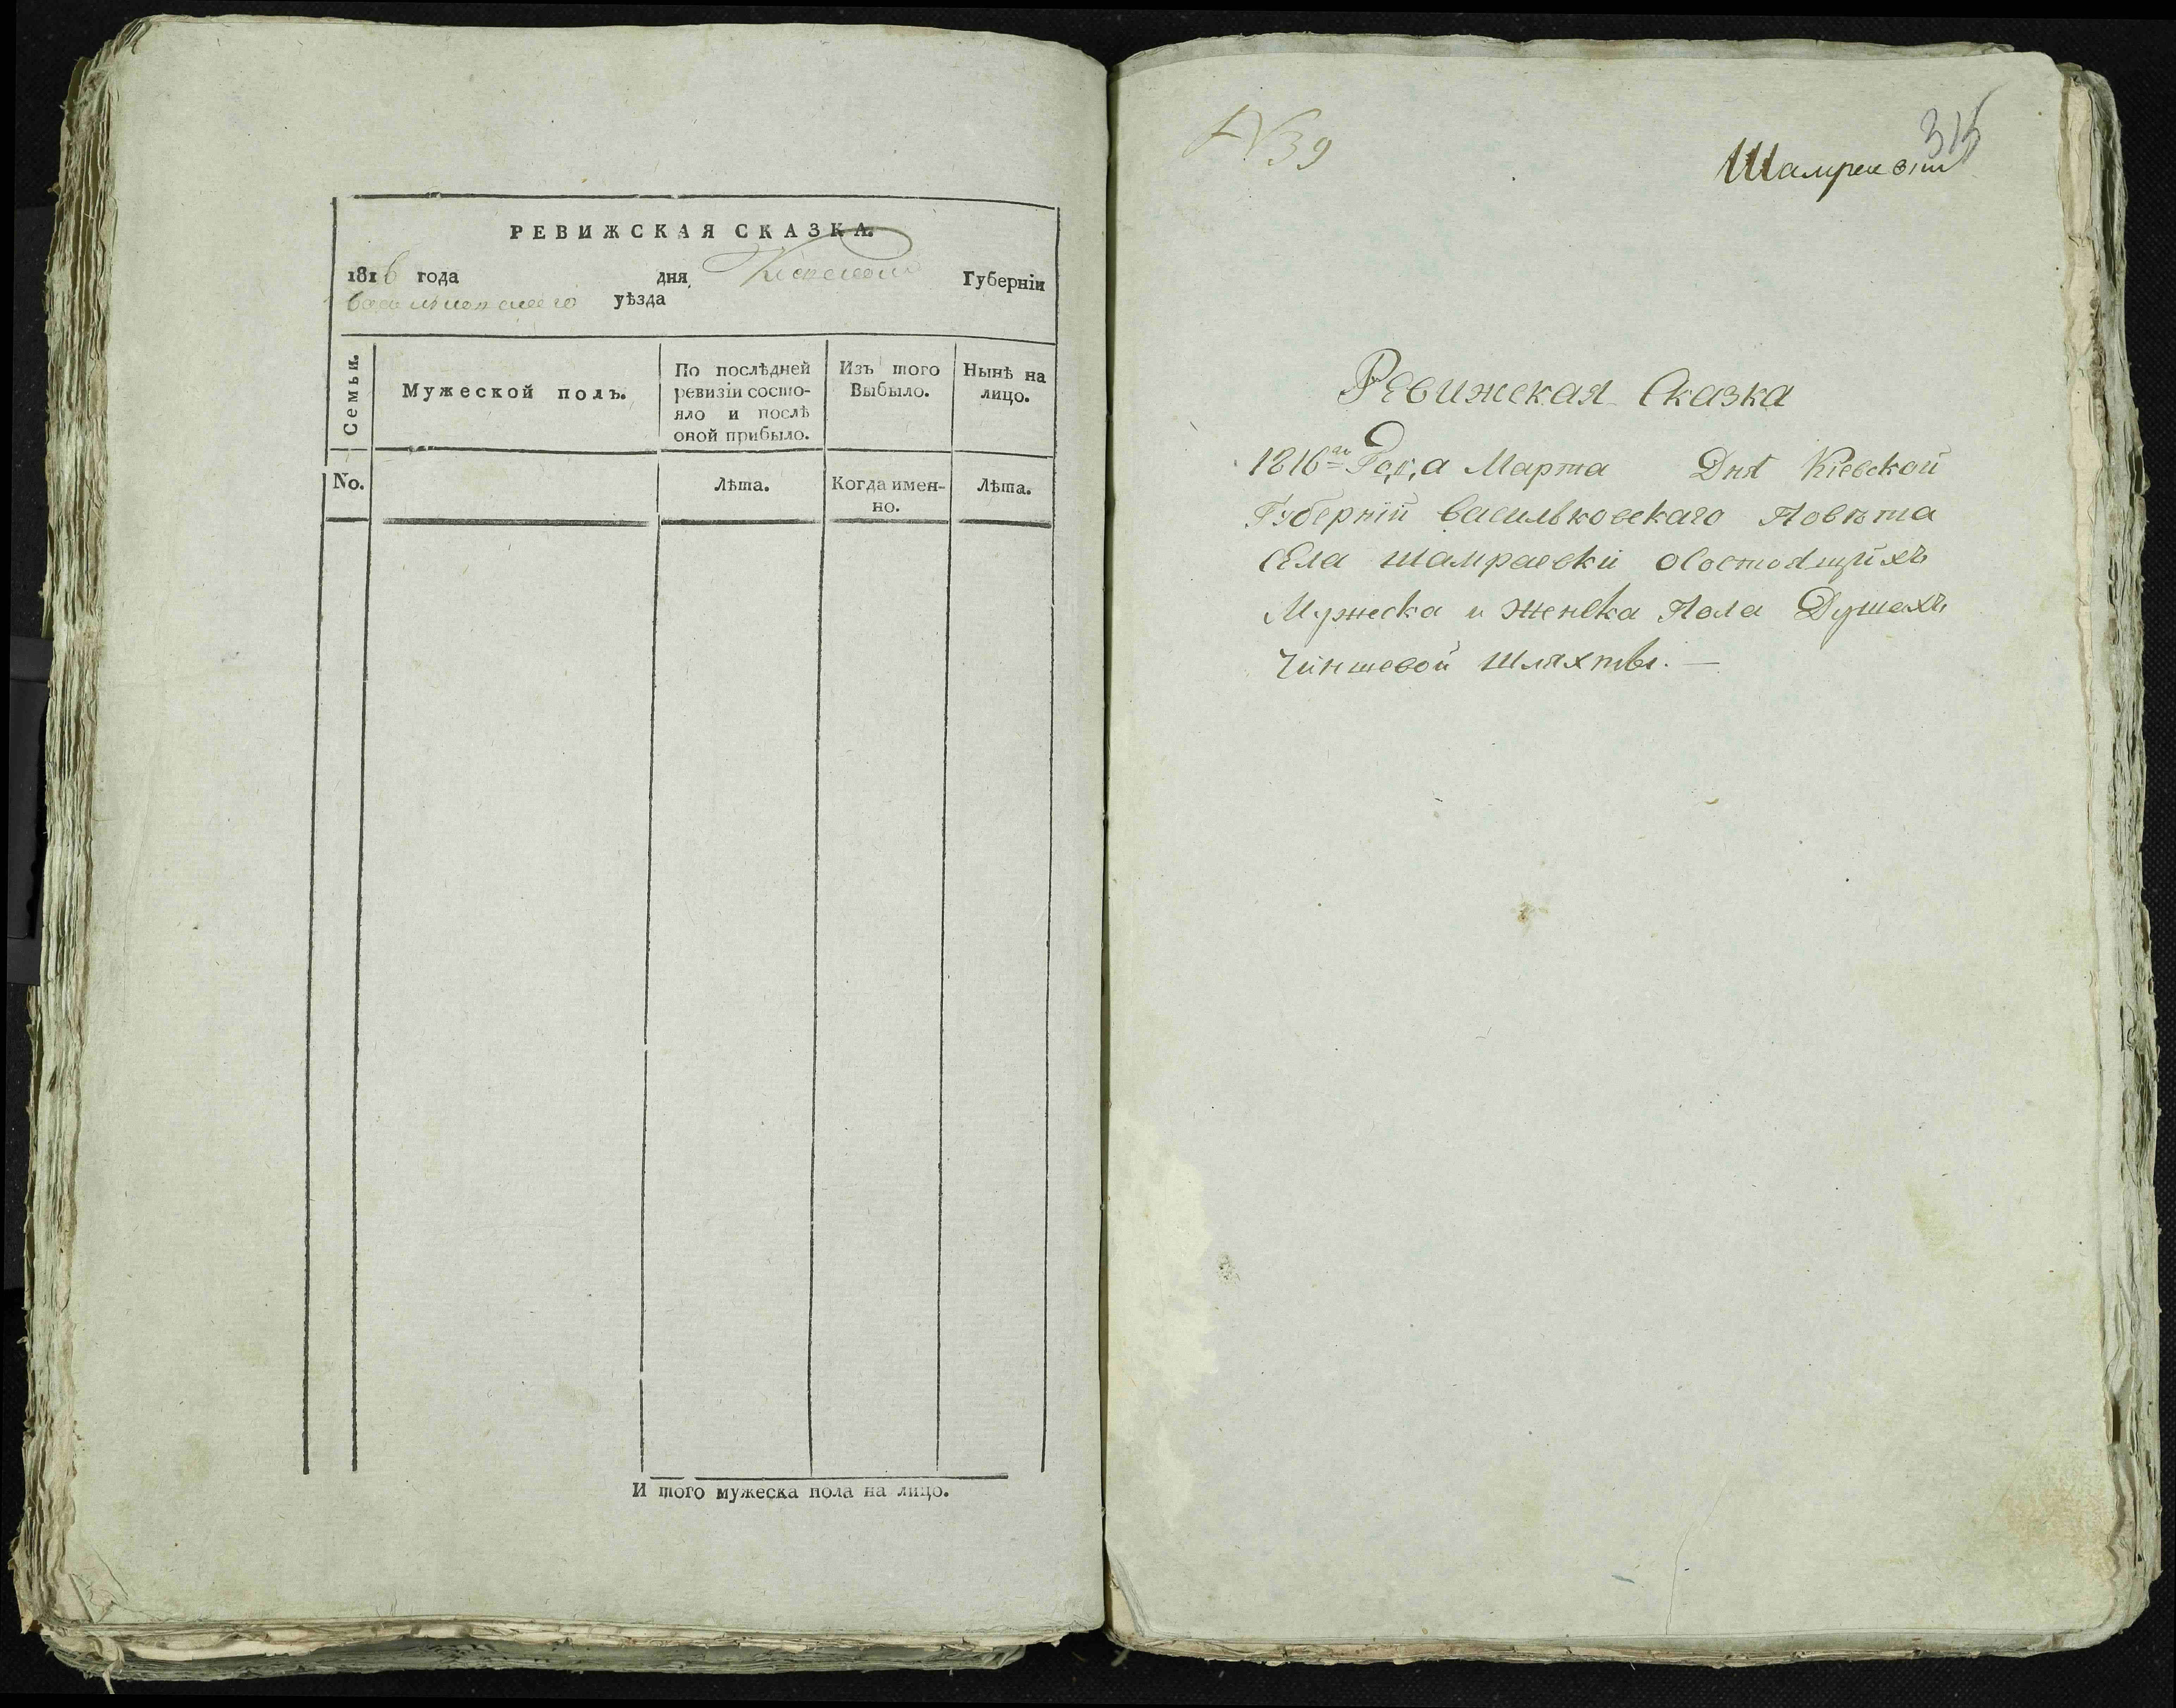 РЕВИЖСКАЯ СКАЗКА.
1816 года дня Кіевской Губерніи
васильковскаго уѣзда
Семьи.
Мужеской полъ.
По послѣдней
ревизіи состо-
яло и послѣ
оной прибыло.
Изъ того
Выбыло.
Нынѣ на
лицо.
No.
Лѣта.
Когда имен-
но.
Лѣта.
И того мужеска пола на лицо.
№39
315
Ревижская Сказка
1816го Года Марта Дня Кіевской
Губерніи васильковскаго Повѣта
Села шамраевки осостоящихъ
Мужеска и женска Пола Душахъ
Чиншевой шляхты. —